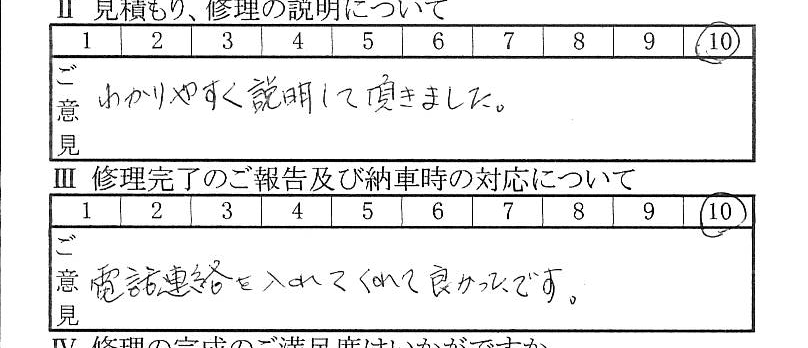 Ⅱ 見積もり、修理の説明について
1 2 3 4 5 6 7 8 9 10
ご意見
わかりやすく説明して頂きました。
Ⅲ 修理完了のご報告及び納車時の対応について
1 2 3 4 5 6 7 8 9 10
ご意見
電話連絡を入れてくれて良かったです。
Ⅳ 修理の完成のご満足度はいかがですか